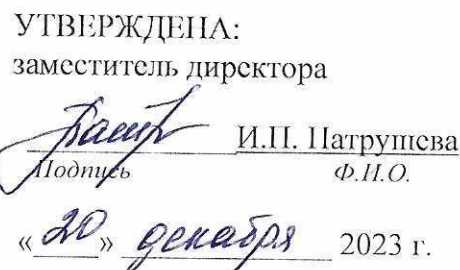 УТВЕРЖДЕНА:
заместитель директора
И.П. Патрушева
Подпись Ф.И.О.
«20» декабря 2023 г.